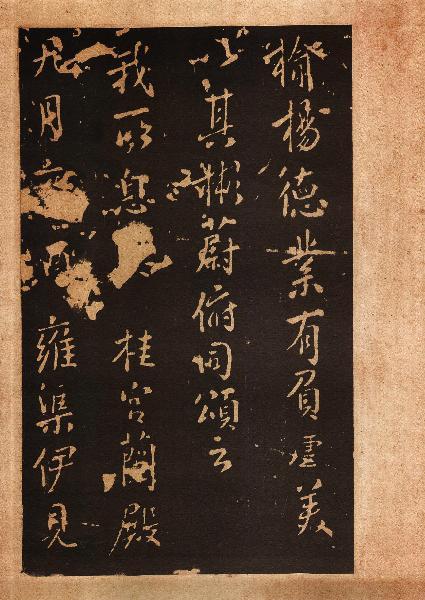 揄揚德業有負虛美
以其彬蔚俯同頌云
我所息桂宮蘭殿
九月雍渠伊見